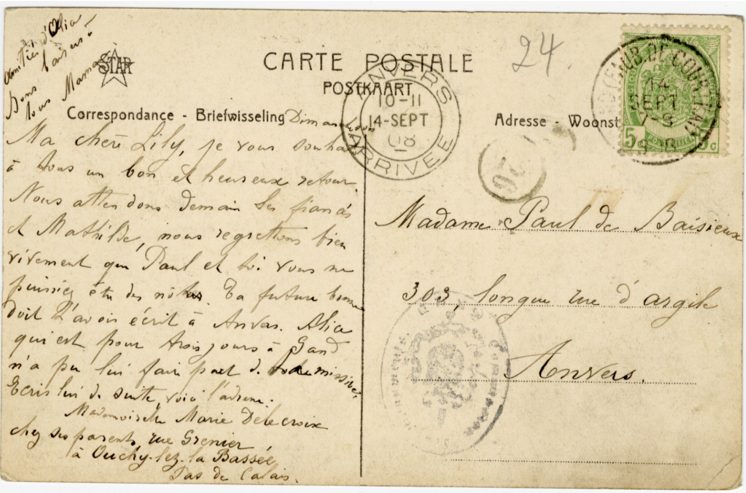 amitiés d'Alia
Bons baisers à
tous Maman
STAR
CARTE POSTALE
POSTKAART
24.
Correspondance - Briefwisseling
Adresse - Woonst
ANVERS
10-11
14-SEPT
08
ARRIVÉE
14
SEPT
7-8
5c 5c
26
Dimanche
Ma chère Lily, je vous souhaite
à tous un bon et heureux retour.
Nous attendons demain les fiancés
et Mathilde, nous regrettons bien
vivement que Paul et toi vous ne
puissiez être des nôtres. Ta future bonne
doit t'avoir écrit à Anvers. Alia
qui est pour trois jours à Gand
n'a pu lui faire part de
Ecris lui de suite voici l'adresse.
Mademoiselle Marie Delecroix
chez ses parents, rue Grenier
à Ouchy-lez-la Bassée
Pas de Calais.
Madame Paul de Baisieux
303, longue rue d'argile
Anvers.